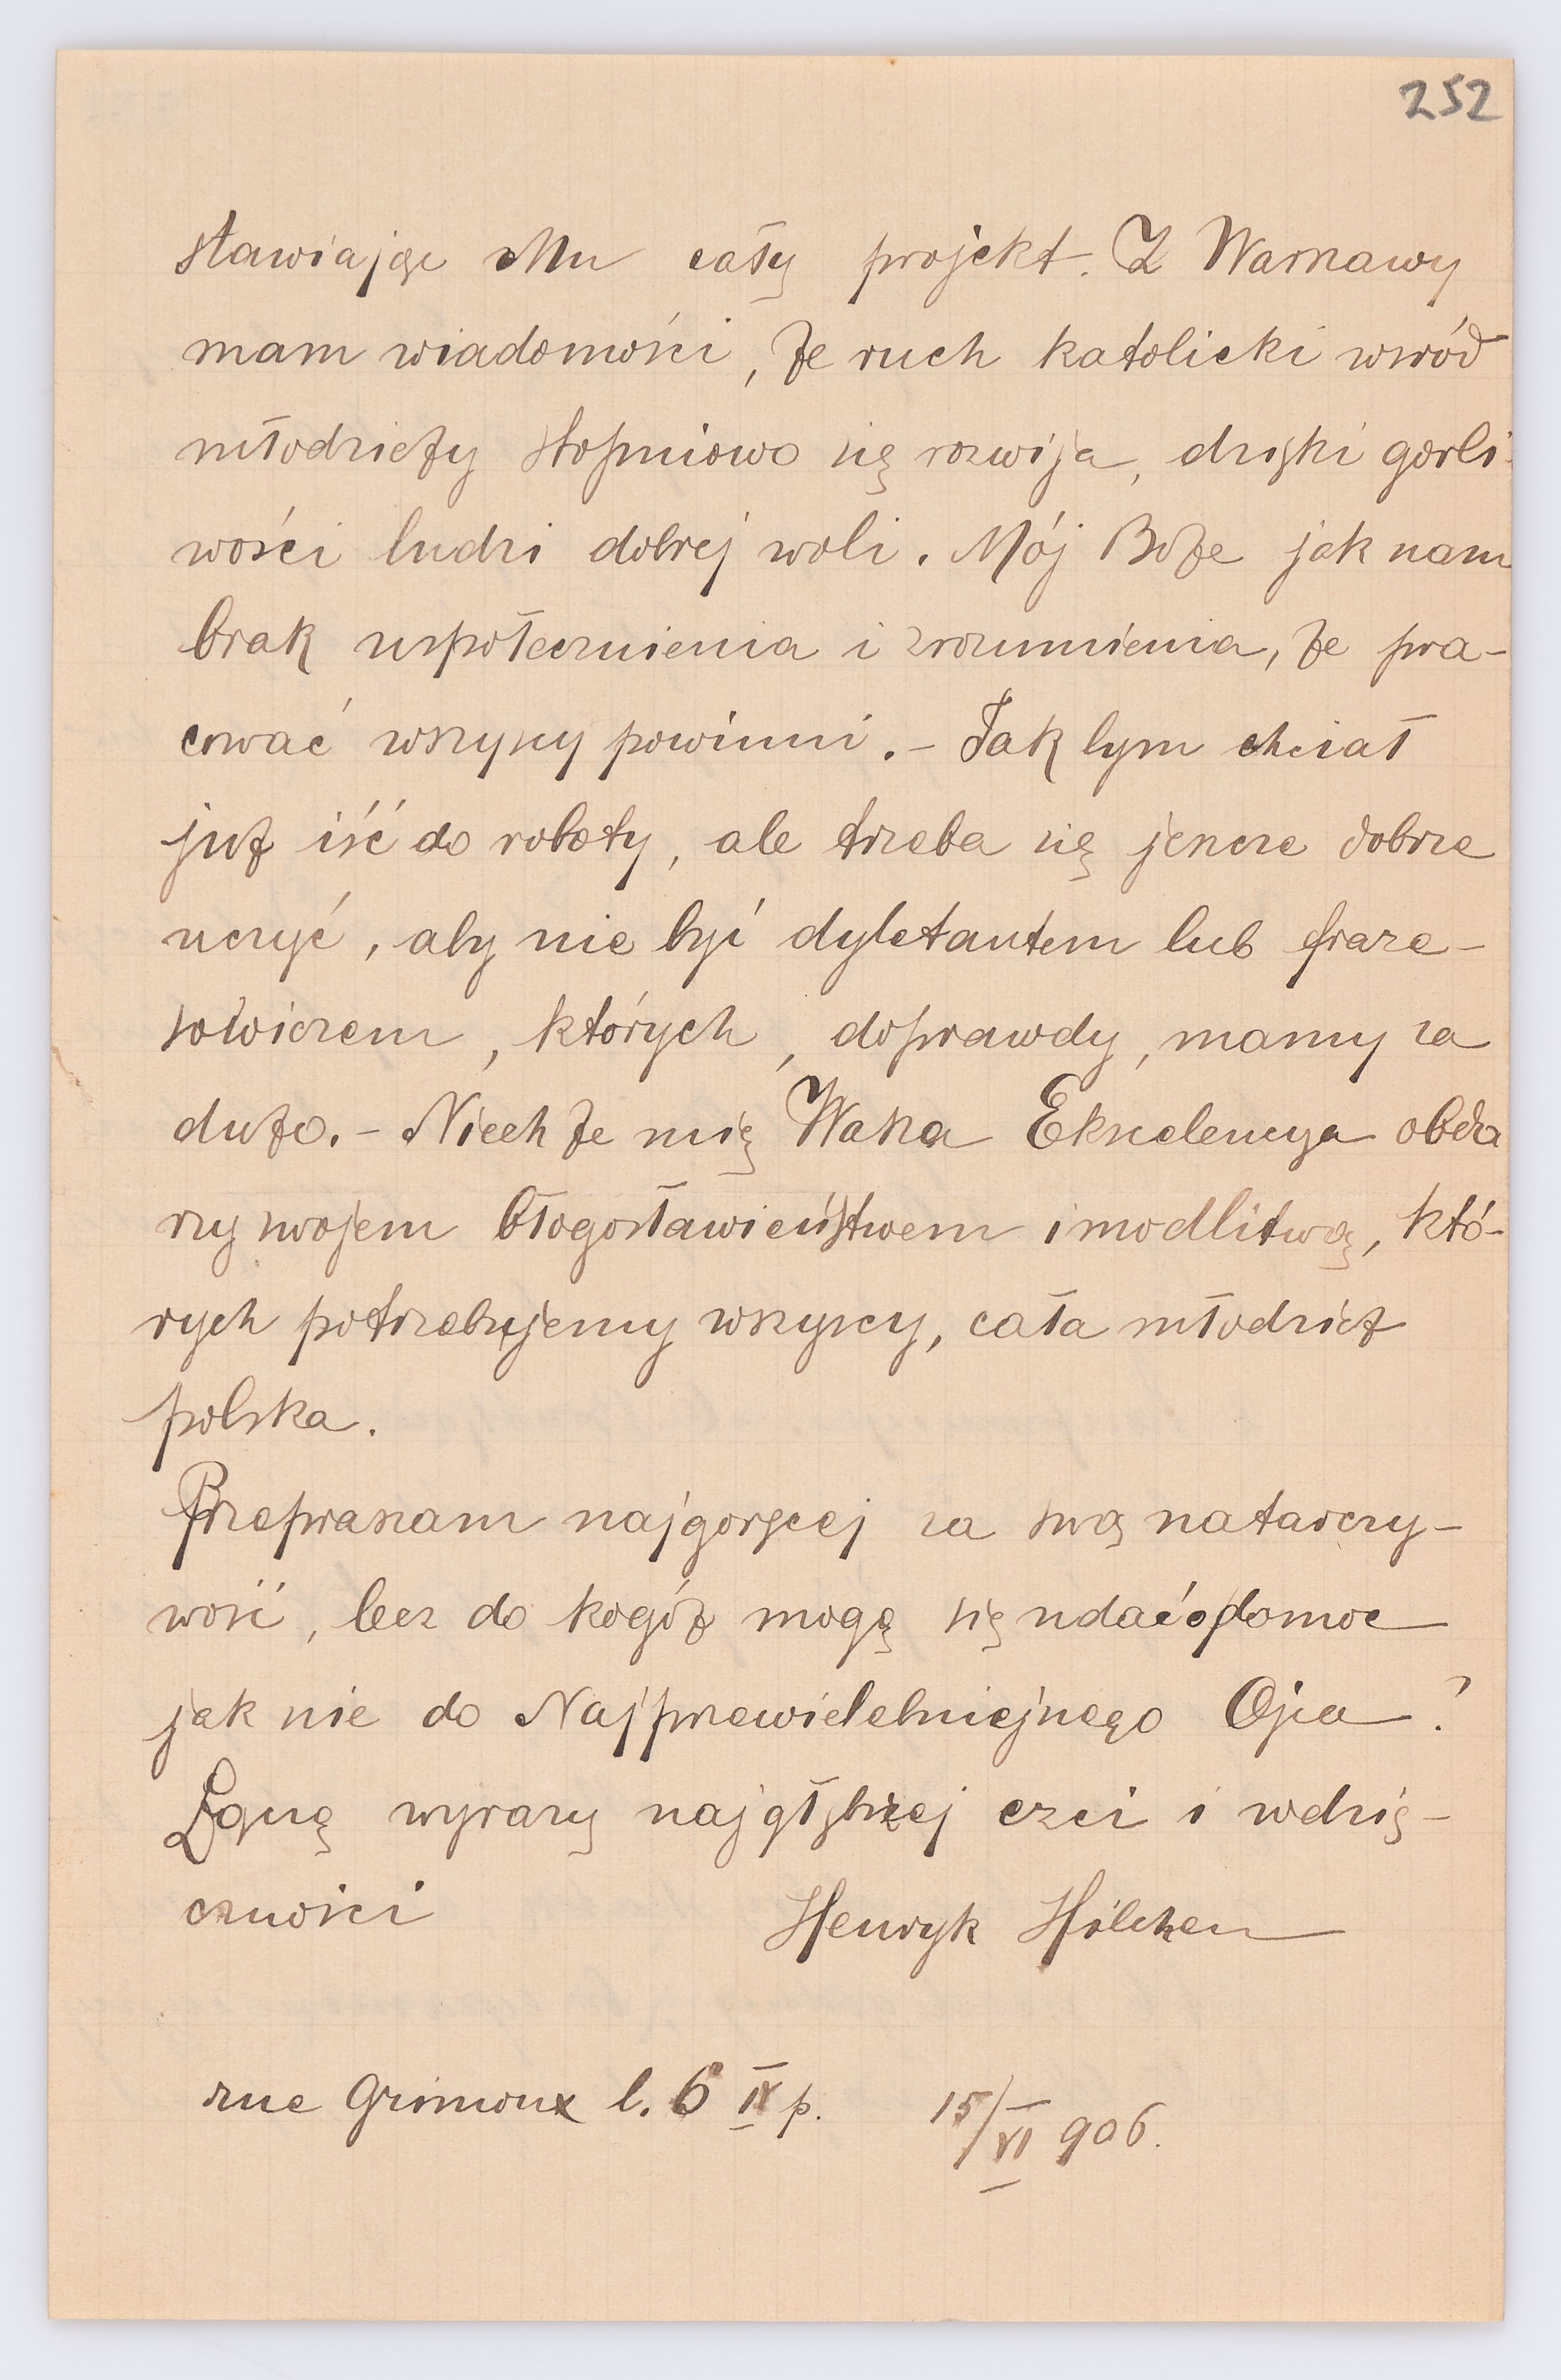 252
stawiając Mu cały projekt. Z Warszawy
mam wiadomości, że ruch katolicki wśród
młodzieży stopniowo się rozwija, dzięki gorli-
wości ludzi dobrej woli. Mój Boże jak nam
brak uspołecznienia i zrozumienia, że pra-
cować wszyscy powinni. – Jak bym chciał
już iść do roboty, ale trzeba się jeszcze dobrze
uczyć, aby nie być dyletantem lub fraze-
sowiczem, których, doprawdy, mamy za
dużo. – Niechże mię Wasza Ekscelencya obda
rzy swojem błogosławieństwem i modlitwą, któ-
rych potrzebujemy wszyscy, cała młodzież
polska.
Przepraszam najgoręcej za swą natarczy-
wość, lecz do kogóż mogę się udać o pomoc
jak nie do Najprzewielebniejszego Ojca?
Łączę wyrazy najgłębszej czci i wdzię-
czności
Henryk Hilchen
rue Grimoux l. 6 IV p.
15/VI 906.